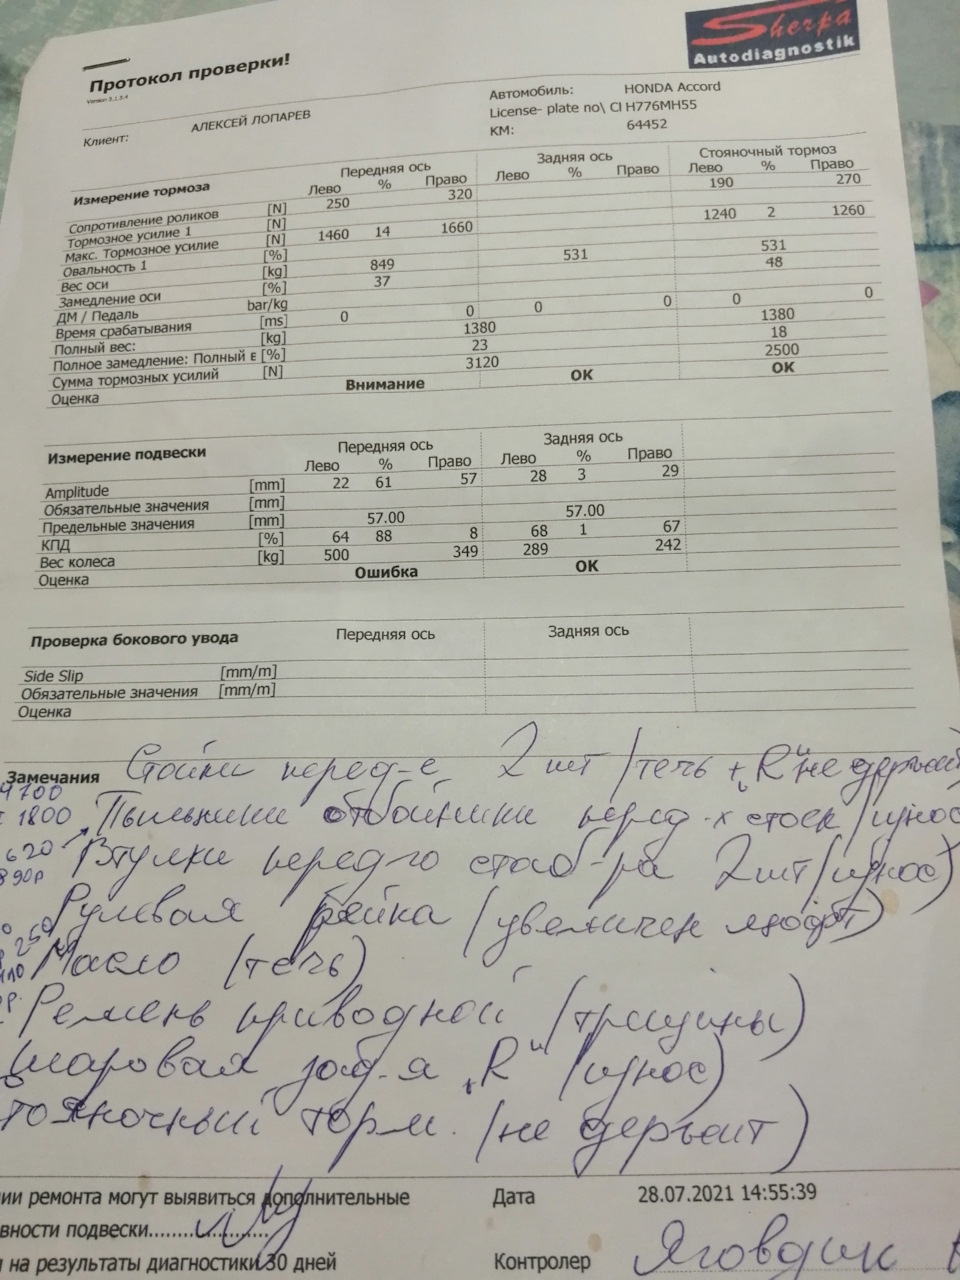 Sherpa
Autodiagnostik
Протокол проверки!
Version 3.1.5.4
Клиент: АЛЕКСЕЙ ЛОПАРЕВ
Автомобиль: HONDA Accord
License- plate no\ Cl H776MH55
КМ: 64452
Измерение тормоза Передняя ось Задняя ось Стояночный тормоз
Лево % Право Лево % Право Лево % Право
Сопротивление роликов [N] 250 320 190 270
Тормозное усилие 1 [N]
Макс. Тормозное усилие [N] 1460 14 1660 1240 2 1260
Овальность 1 [%]
Вес оси [kg] 849 531 531
Замедление оси [%] 37 48
ДМ / Педаль bar/kg
Время срабатывания [ms] 0 0 0 0 0 0
Полный вес: [kg] 1380 1380
Полное замедление: Полный в [%] 23 18
Сумма тормозных усилий [N] 3120 2500
Оценка Внимание OK OK
Измерение подвески Передняя ось Задняя ось
Лево % Право Лево % Право
Amplitude [mm] 22 61 57 28 3 29
Обязательные значения [mm]
Предельные значения [mm] 57.00 57.00
КПД [%] 64 88 8 68 1 67
Вес колеса [kg] 500 349 289 242
Оценка Ошибка OK
Проверка бокового увода Передняя ось Задняя ось
Side Slip [mm/m]
Обязательные значения [mm/m]
Оценка
Замечания Стойки перед-е 2 шт (течь "R" не держит
1800 Пыльники отбойники перед-х стоек (износ
620 Втулки передго стаб-ра 2шт (износ)
890р
Рулевая рейка (увеличен люфт)
250
Масло (течь)
Ремень приводной (трещины)
Шаровая зад-я "R" (износ)
тояночный торм. (не держит)
ии ремонта могут выявиться дополнительные
вности подвески....................
на результаты диагностики 30 дней
Дата 28.07.2021 14:55:39
Контролер